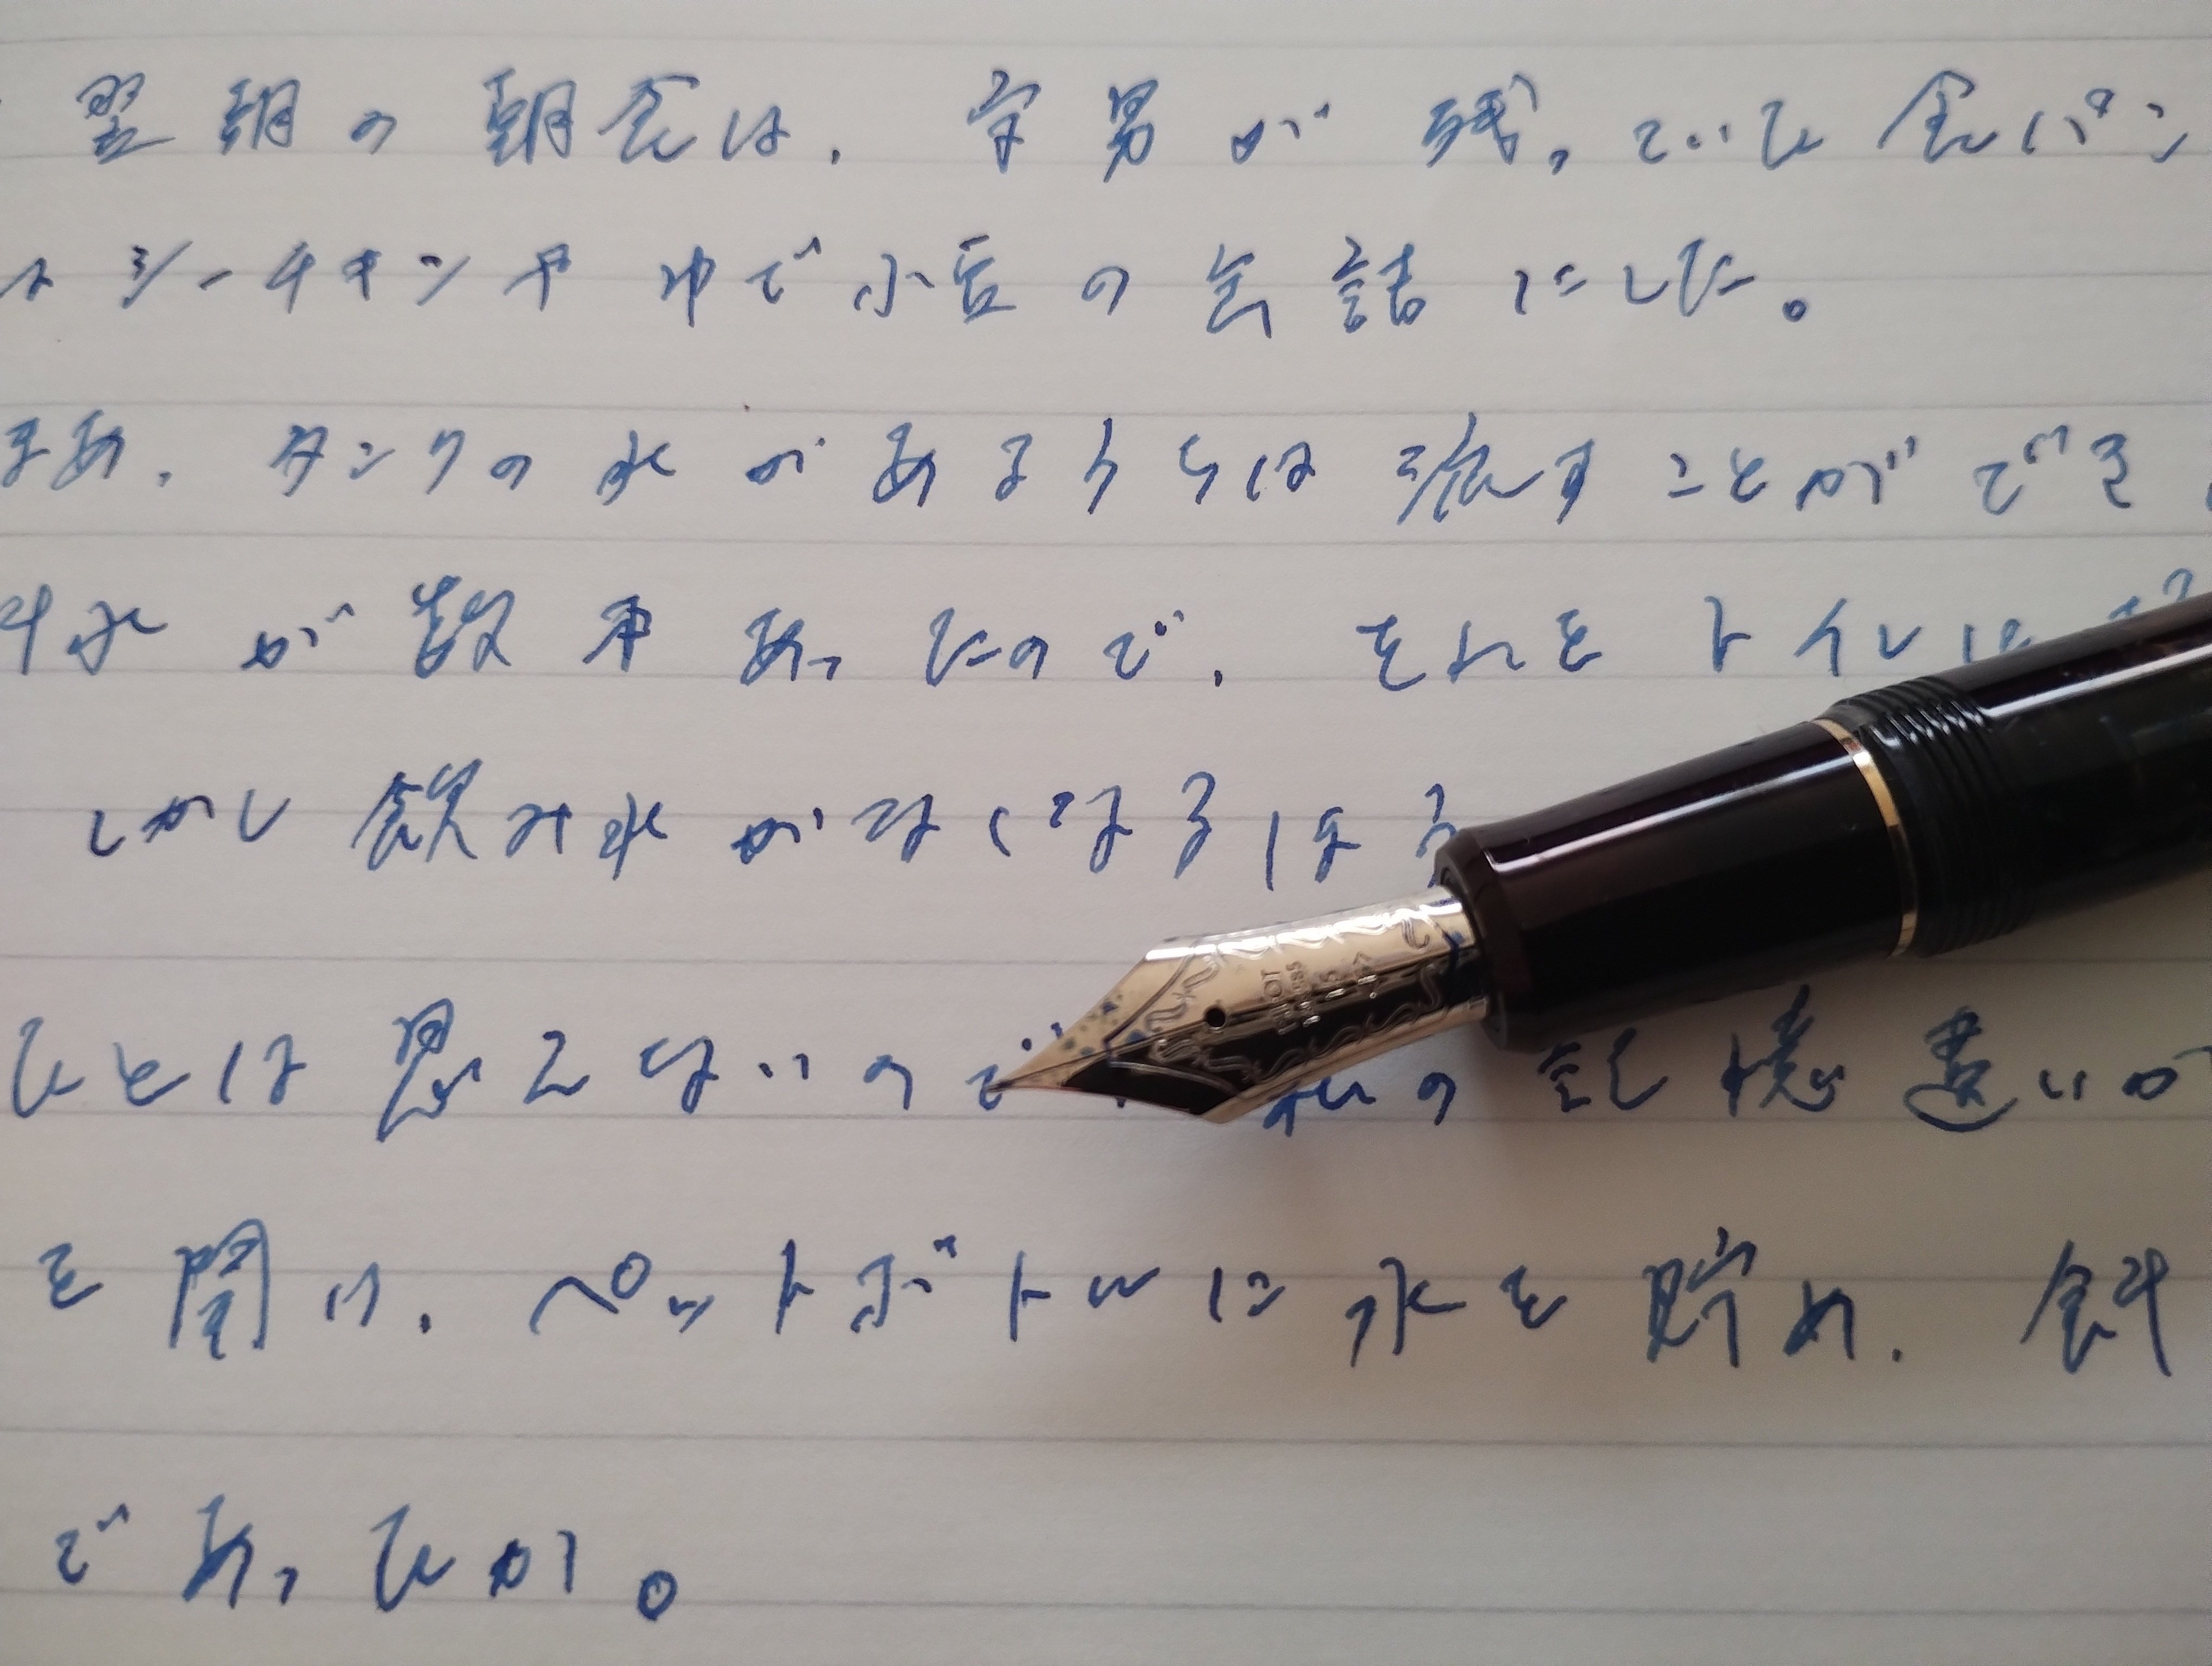 翌朝の朝食は、字男が残っていた食パン
はシーチキンやゆで小豆の缶詰にした。
まあ、タンクの水があるうちは流すことができ
水が数本あったので、それをトイレに
しかし飲み水がなくなるほう
たとは思えないので 私の記憶違いか
を開け、ペットボトルに水を貯め、
であったか。